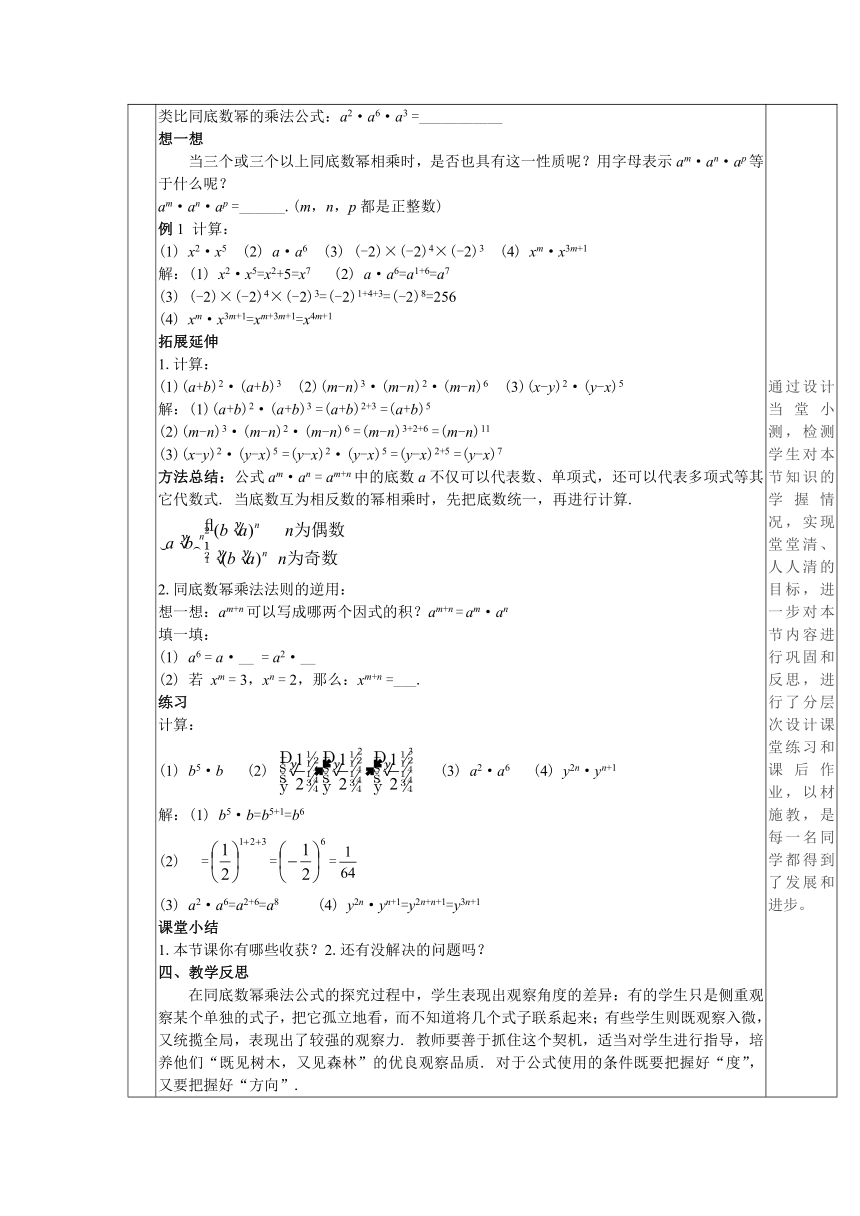 类比同底数幂的乘法公式：a²·a⁶·a³ =____________
想一想
当三个或三个以上同底数幂相乘时，是否也具有这一性质呢？用字母表示 aᵐ·aⁿ·aᵖ 等
于什么呢？
aᵐ·aⁿ·aᵖ =______. (m，n，p 都是正整数)
例 1 计算：
(1) x²·x⁵ (2) a·a⁶ (3) (-2)×(-2)⁴×(-2)³ (4) xᵐ·x³ᵐ⁺¹
解：(1) x²·x⁵=x²+5=x⁷ (2) a·a⁶=a¹⁺⁶=a⁷
(3) (-2)×(-2)⁴×(-2)³=(-2)¹⁺⁴⁺³=(-2)⁸=256
(4) xᵐ·x³ᵐ⁺¹=xᵐ⁺³ᵐ⁺¹=x⁴ᵐ⁺¹
拓展延伸
1. 计算：
(1)(a+b)²·(a+b)³ (2)(m-n)³·(m-n)²·(m-n)⁶ (3)(x-y)²·(y-x)⁵
解：(1)(a+b)²·(a+b)³ =(a+b)²⁺³ =(a+b)⁵
(2)(m-n)³·(m-n)²·(m-n)⁶ =(m-n)³⁺²⁺⁶ =(m-n)¹¹
(3)(x-y)²·(y-x)⁵ =(y-x)²·(y-x)⁵ =(y-x)²⁺⁵ =(y-x)⁷
方法总结：公式 aᵐ·aⁿ = aᵐ⁺ⁿ 中的底数 a 不仅可以代表数、单项式，还可以代表多项式等其
它代数式. 当底数互为相反数的幂相乘时，先把底数统一，再进行计算.
n为偶数
n为奇数
2. 同底数幂乘法法则的逆用：
想一想：aᵐ⁺ⁿ 可以写成哪两个因式的积？aᵐ⁺ⁿ = aᵐ·aⁿ
填一填：
(1) a⁶ = a·__ = a²·__
(2) 若 xᵐ = 3，xⁿ = 2，那么：xᵐ⁺ⁿ =___.
练习
计算：
(1) b⁵·b (2) (3) a²·a⁶ (4) y²ⁿ·yⁿ⁺¹
解：(1) b⁵·b=b⁵⁺¹=b⁶
(2) =(1/2)¹⁺²⁺³=(−1/2)⁶=1/64
(3) a²·a⁶=a²⁺⁶=a⁸ (4) y²ⁿ·yⁿ⁺¹=y²ⁿ⁺ⁿ⁺¹=y³ⁿ⁺¹
课堂小结
1. 本节课你有哪些收获？2. 还有没解决的问题吗？
四、教学反思
在同底数幂乘法公式的探究过程中，学生表现出观察角度的差异：有的学生只是侧重观
察某个单独的式子，把它孤立地看，而不知道将几个式子联系起来；有些学生则既观察入微，
又统揽全局，表现出了较强的观察力. 教师要善于抓住这个契机，适当对学生进行指导，培
养他们“既见树木，又见森林”的优良观察品质. 对于公式使用的条件既要把握好“度”，
又要把握好“方向”.
通过设计
当堂小
测，检测
学生对本
节知识的
学握情
况，实现
堂堂清、
人人清的
目标，进
一步对本
节内容进
行巩固和
反思，进
行了分层
次设计课
堂练习和
课后作
业，以材
施教，是
每一名同
学都得到
了发展和
进步。